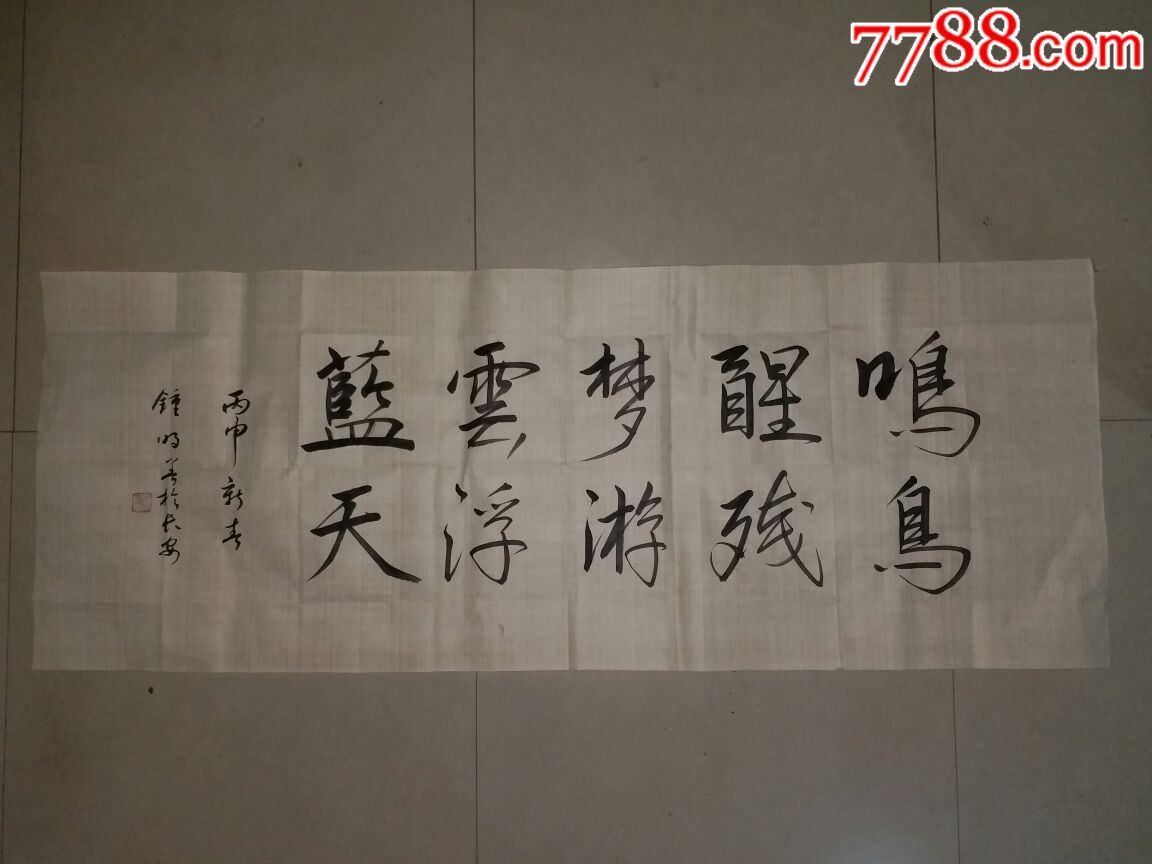 7788.com
鳴鳥
醒残
梦游
雲浮
藍天
丙申新春
鍾明善於长安